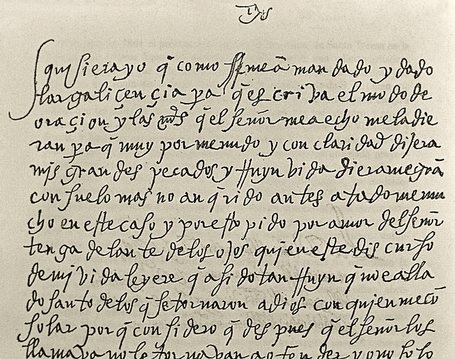 jhs
quisiera yo q̄ como me ā man dado y dado
larga liçençia pa q̄ es criva el modo de
oraçion y las mrds q̄ el señor me a echo me la die
ran pa q̄ muy por menudo y con claridad dijera
mis gran des pecados y rruyn vida diera me grā
con suelo mas no an q̄rido antes atado me mu
cho en este caso y por esto pido por amor del señor
tenga delan te de los ojos quien este dis curso
de mj vida leyere q̄ a sido tan rruyn q̄ no e alla
do santo de los q̄ se tornaron a dios con quien me cō
solar por q̄ con sidero q̄ des pues q̄ el señor los
llamava no le tornavan a ofen der yo no solo